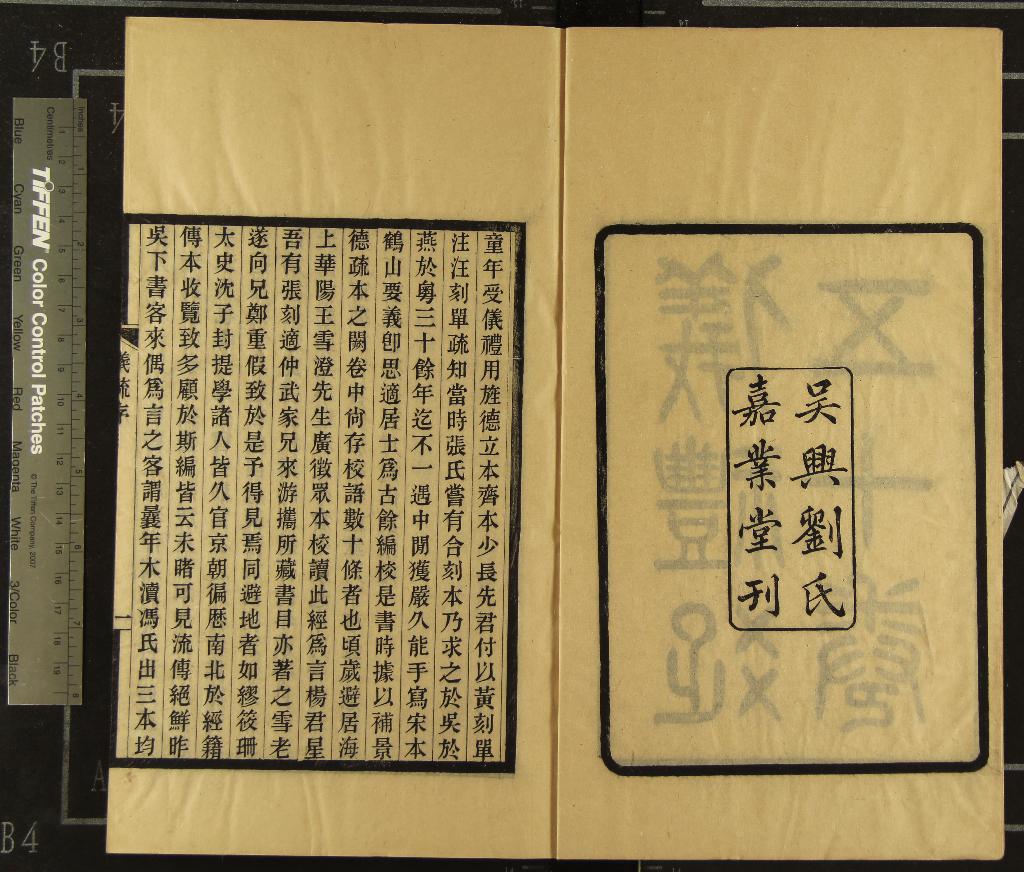 吳興劉氏
嘉業堂刊
童年受儀禮用旌德立本齊本少長先君付以黃刻單
注汪刻單疏知當時張氏嘗有合刻本乃求之於吳於
燕於粵三十餘年迄不一遇中閒獲嚴久能手寫宋本
鶴山要義卽思適居士爲古餘編校是書時據以補景
德疏本之闕卷中尙存校語數十條者也頃歲避居海
上華陽王雪澄先生廣徵眾本校讀此經爲言楊君星
吾有張刻適仲武家兄來游攜所藏書目亦著之雪老
遂向兄鄭重假致於是予得見焉同避地者如繆筱珊
太史沈子封提學諸人皆久官京朝徧歷南北於經籍
傳本收覽致多顧於斯編皆云未睹可見流傳絕鮮昨
吳下書客來偶爲言之客謂曩年木瀆馮氏出三本均
義疏序
一
B4
B4
A
Inches
Centimetres
TIFFEN Color Control Patches
© The Tiffen Company, 2007
Blue
Cyan
Green
Yellow
Red
Magenta
White
3/Color
Black